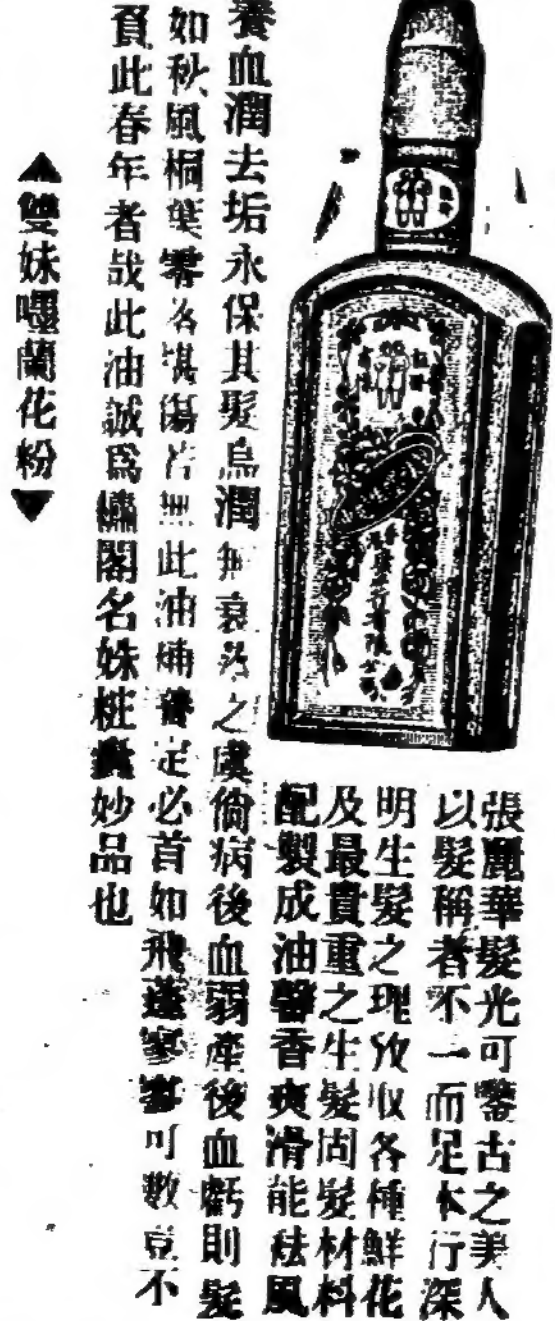 張麗華髮光可鑒古之美人
以髮稱者不一而足本行深
明生髮之理攷收各種鮮花
及最貴重之生髮固髮材料
配製成油馨香爽滑能祛風
養血潤去垢永保其髮烏潤無衰落之虞倘病後血弱產後血虧則髮
如秋風桐葉零落堪傷若無此油補養定必首如飛蓬寥寥可數豈不
負此春年者哉此油誠爲繡閣名姝粧奩妙品也
▲雙妹嚜蘭花粉▼
廣生行有限公司